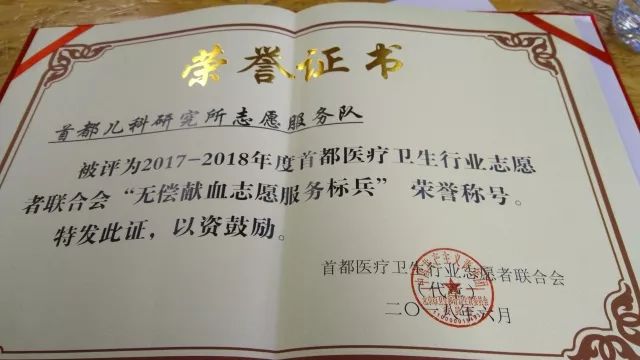 荣誉证书
首都儿科研究所志愿服务队
被评为2017-2018年度首都医疗卫生行业志愿
者联合会“无偿献血志愿服务标兵” 荣誉称号。
特发此证，以资鼓励。
首都医疗卫生行业志愿者联合会
（代章）
二〇一八年六月